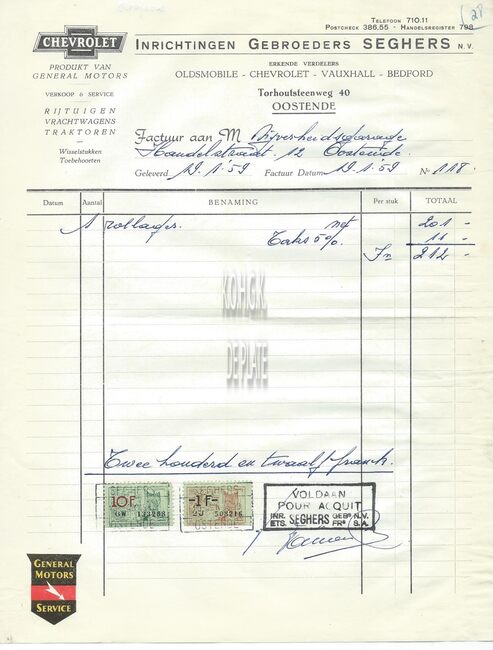 28
TELEFOON 710.11
POSTCHECK 386.55 - HANDELSREGISTER 798
CHEVROLET
INRICHTINGEN GEBROEDERS SEGHERS N.V.
PRODUKT VAN
GENERAL MOTORS
ERKENDE VERDELERS
OLDSMOBILE - CHEVROLET - VAUXHALL - BEDFORD
VERKOOP & SERVICE
Torhoutsteenweg 40
OOSTENDE
RIJTUIGEN
VRACHTWAGENS
TRAKTOREN
Wisselstukken
Toebehoorten
Factuur aan M Nijverheidsgarage
Handelstraat 12 Oostende.
Geleverd 19.1.59 Factuur Datum 19.1.59 No 118.
Datum Aantal BENAMING Per stuk TOTAAL
1 rollager. net 201 -
Taks 5%. 11 -
Fr 212 -
K.O.H.G.K.
DE PLATE
Twee honderd en twaalf franck.
10F. -1F-
GW 133288
508216
VOLDAAN
POUR ACQUIT
INR. SEGHERS GEBR. N.V.
ETS. FRS S.A.
GENERAL
MOTORS
SERVICE